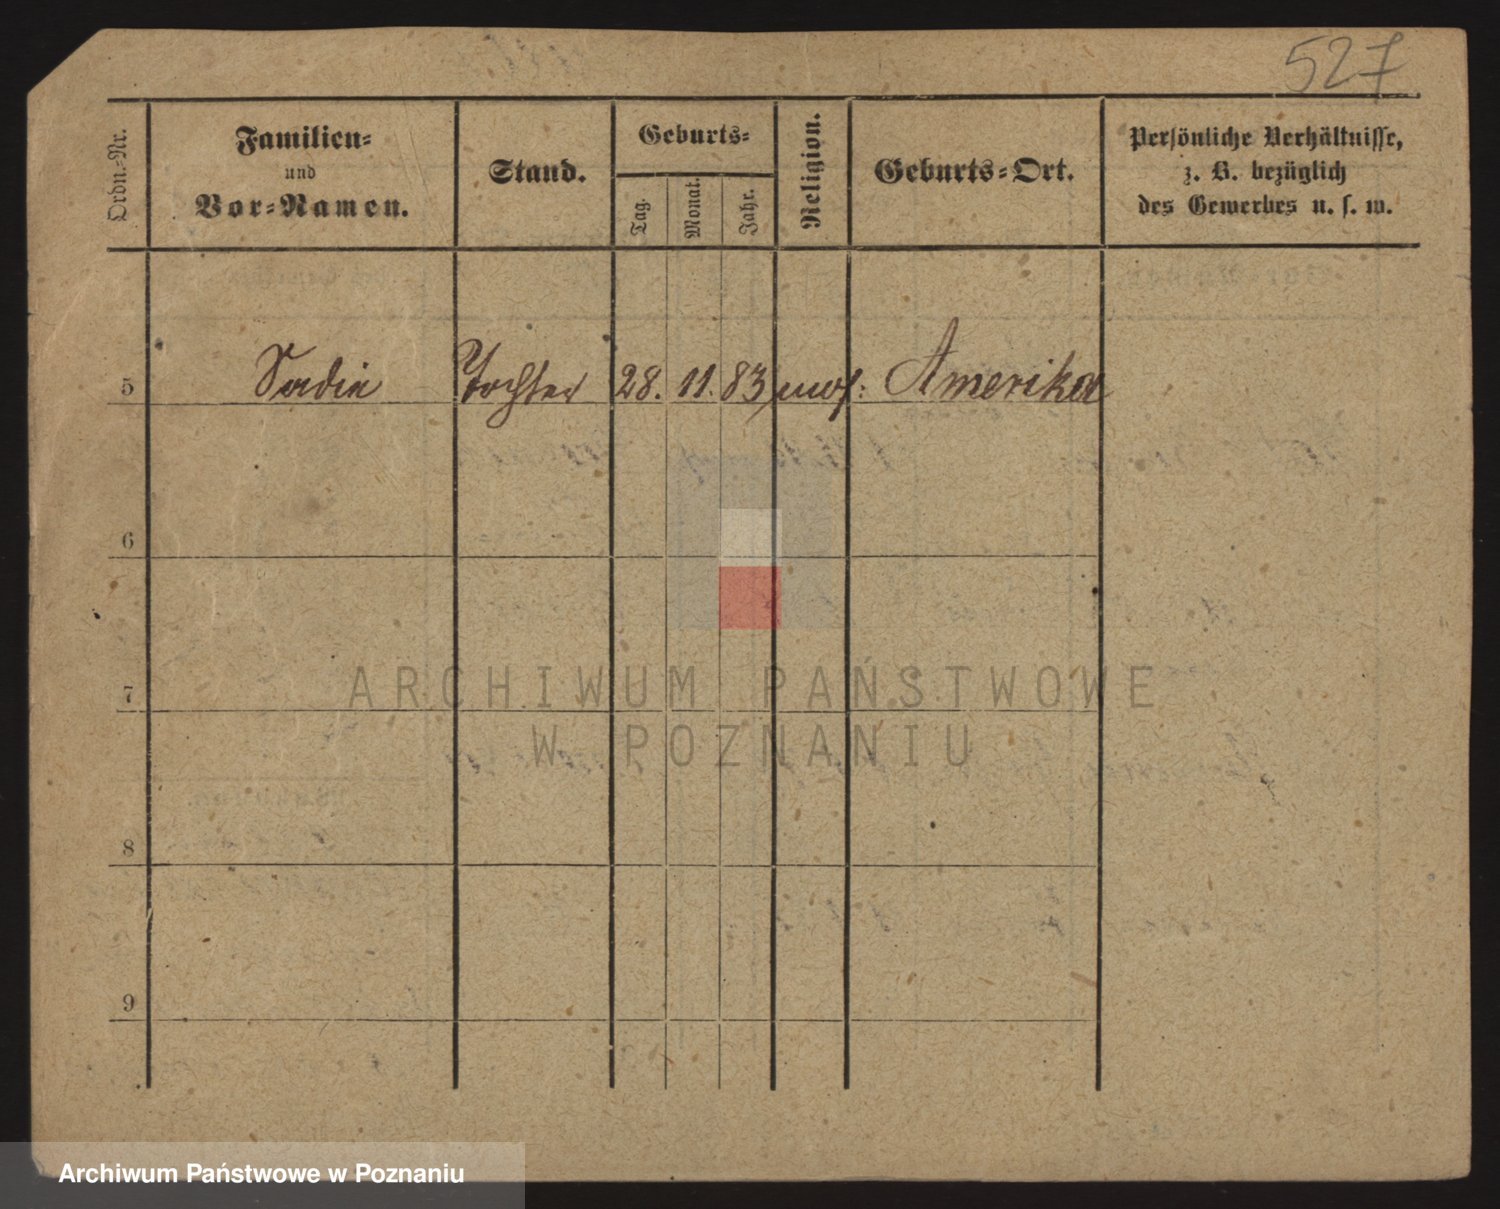 527
Ordn.-Nr.
Familien-
und
Vor-Namen.
Stand.
Geburts-
Tag.
Monat.
Jahr.
Religion.
Geburts-Ort.
Persönliche Verhältnisse,
z. B. bezüglich
des Gewerbes u. s. w.
5 Sadie Tochter 28. 11. 83 mos: Amerika
6
7
8
9
ARCHIWUM PAŃSTWOWE
W POZNANIU
Archiwum Państwowe w Poznaniu